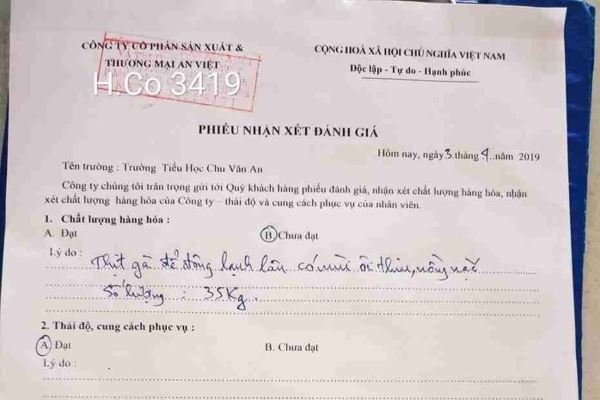 CÔNG TY CỔ PHẦN SẢN XUẤT &
THƯƠNG MẠI AN VIỆT
CỘNG HOÀ XÃ HỘI CHỦ NGHĨA VIỆT NAM
Độc lập - Tự do - Hạnh phúc
H.Co 3419
PHIẾU NHẬN XÉT ĐÁNH GIÁ
Hôm nay, ngày 3 tháng 4 năm 2019
Tên trường : Trường Tiểu Học Chu Văn An
Công ty chúng tôi trân trọng gửi tới Quý khách hàng phiếu đánh giá, nhận xét chất lượng hàng hóa, nhận
xét chất lượng hàng hóa của Công ty – thái độ và cung cách phục vụ của nhân viên.
1. Chất lượng hàng hóa :
A. Đạt
B Chưa đạt
Lý do : Thịt gà để đông lạnh lâu có mùi ôi thiu, nồng nặc
Số lượng : 35Kg.
2. Thái độ, cung cách phục vụ :
A. Đạt
B. Chưa đạt
Lý do :